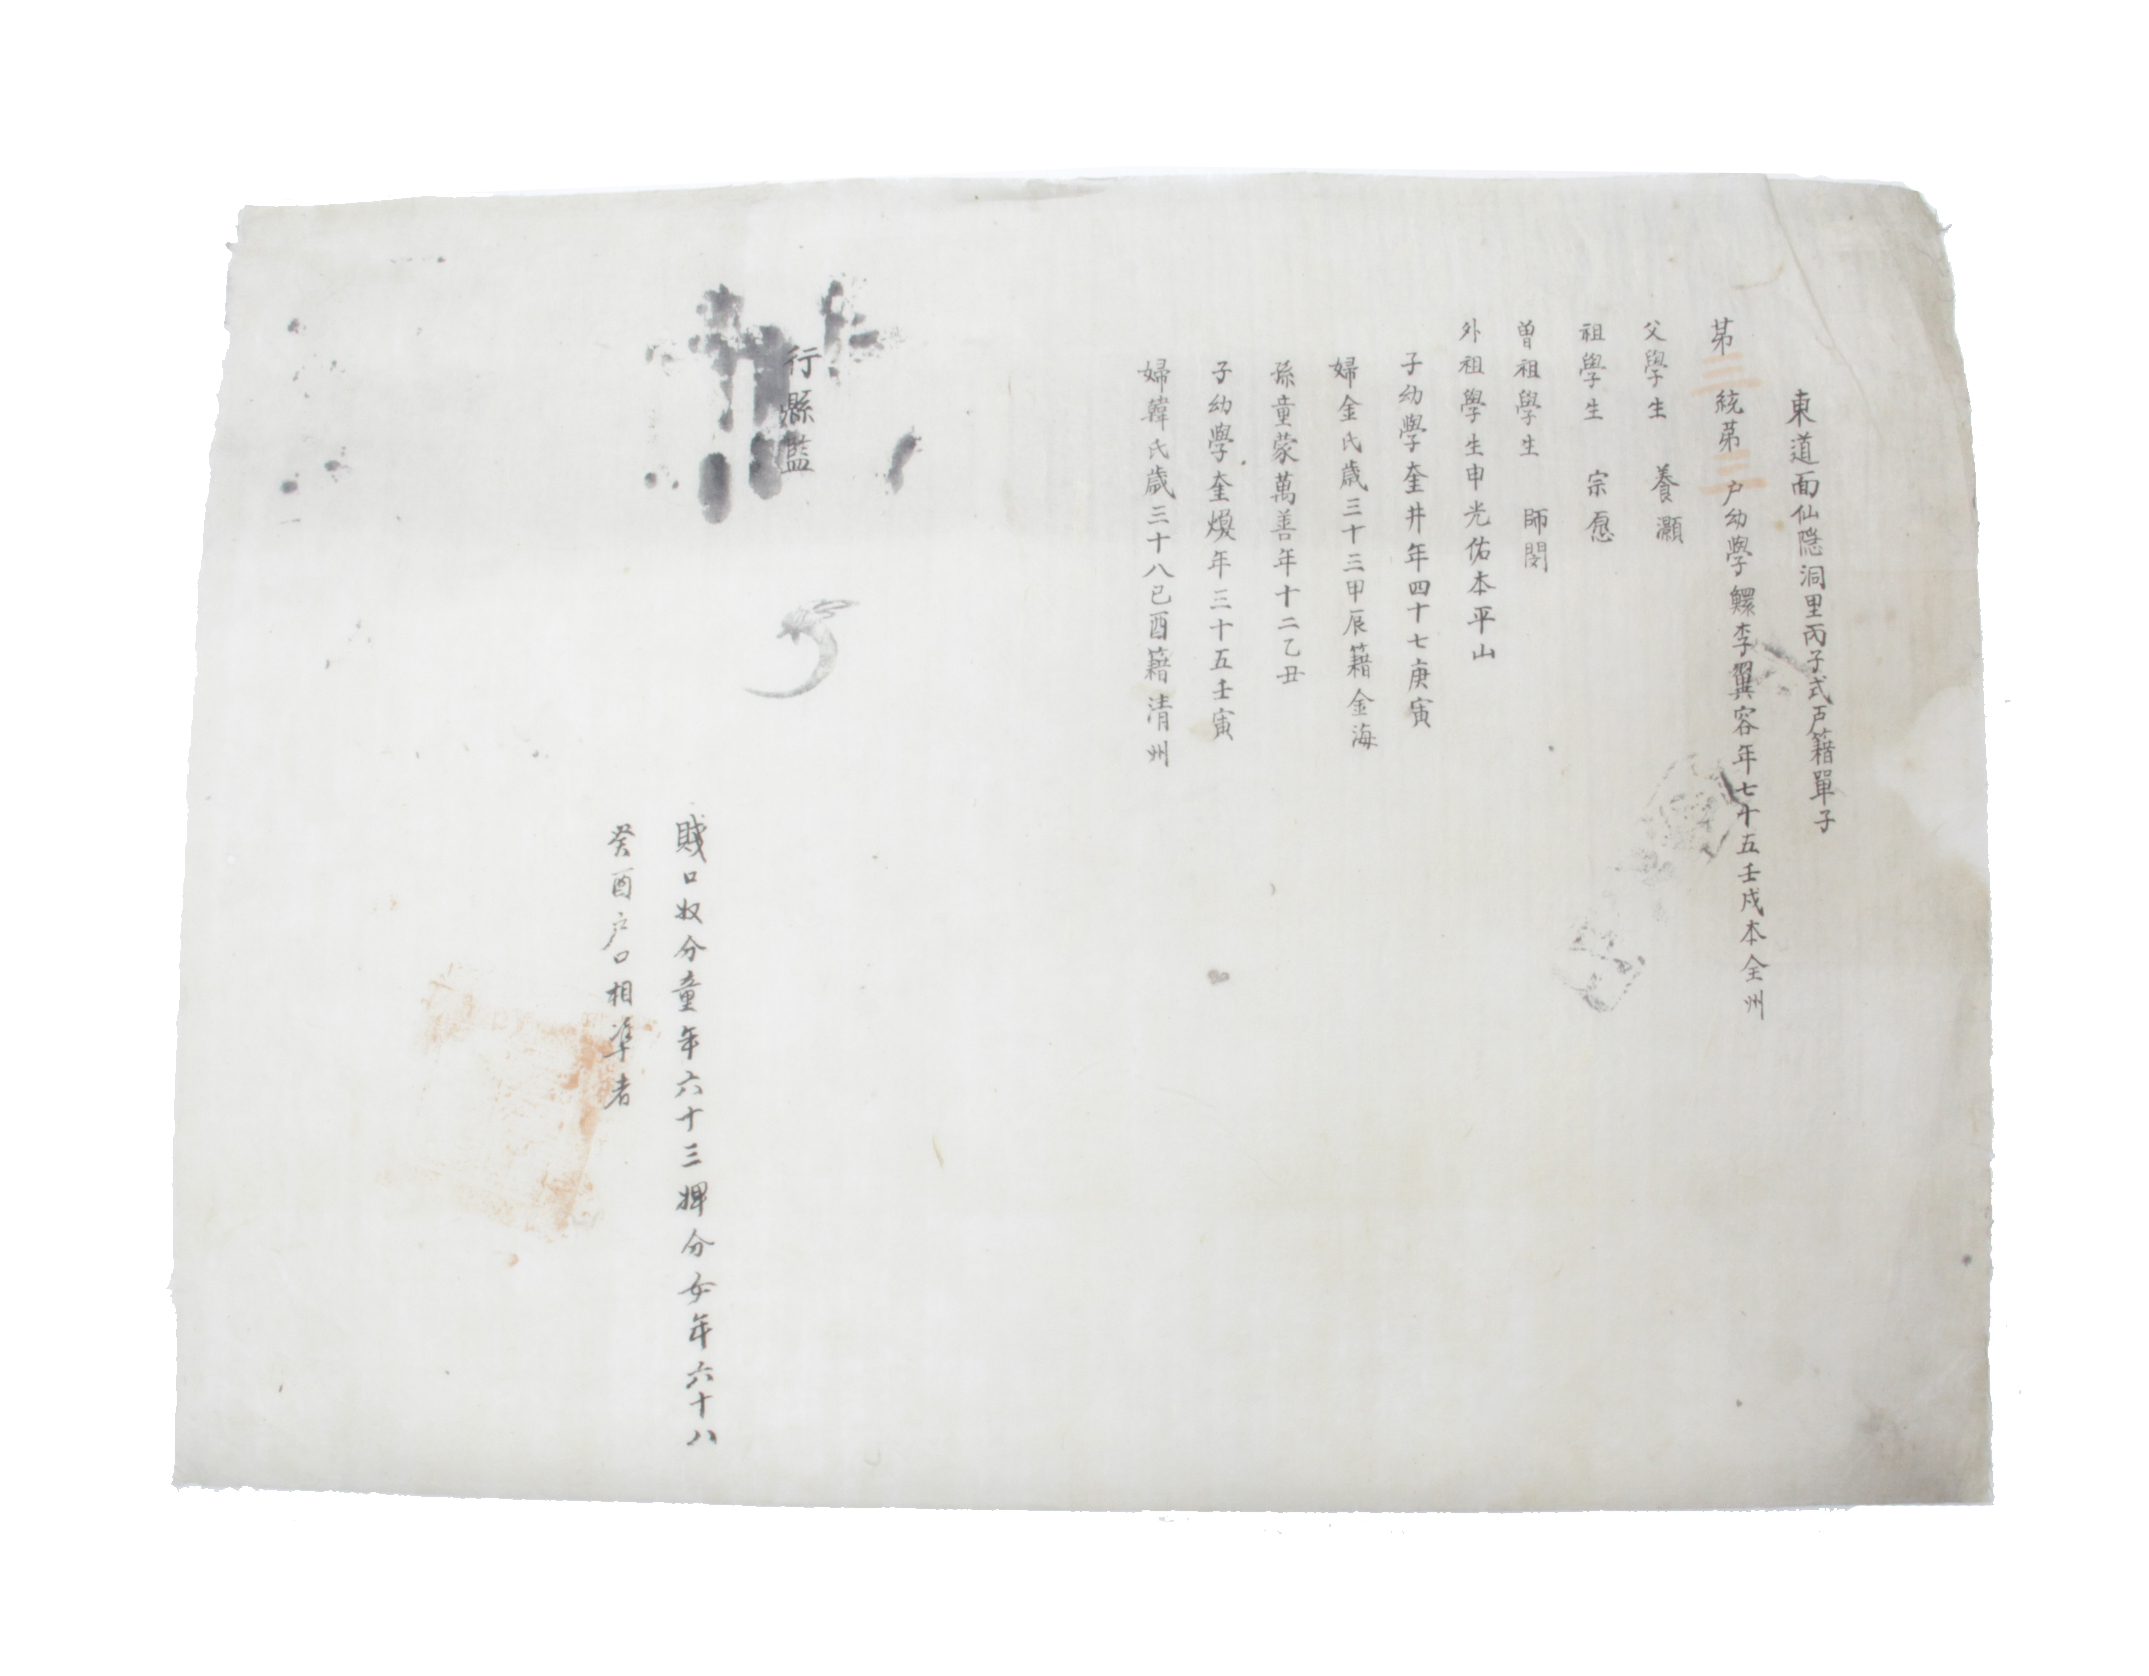 東道面仙隱洞里丙子式戶籍單子
第三統第三戶幼學鰥李翼容年七十五壬戌本全州
父學生 養灝
祖學生 宗愚
曾祖學生 師閔
外祖學生申光佑本平山
子幼學奎井年四十七庚寅
婦金氏歲三十三甲辰籍金海
孫童蒙萬善年十二乙丑
子幼學奎煥年三十五壬寅
婦韓氏歲三十八己酉籍清州
行縣監
賤口奴分童年六十三婢分女年六十八
癸酉戶口相準者